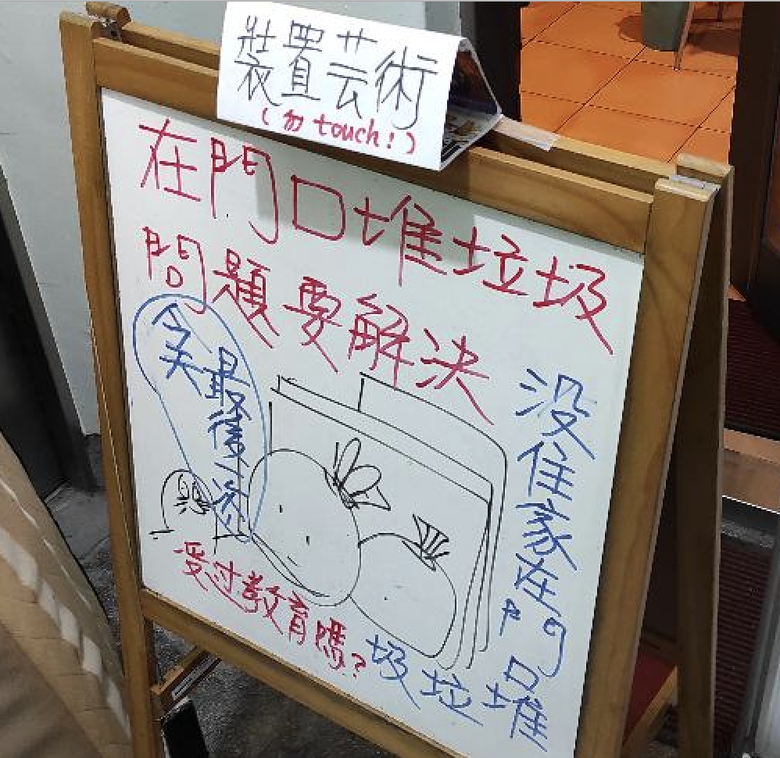 裝置芸術
(勿 touch!)
在門口堆垃圾
問題要解決
今天最後一次
没住家在門口堆
垃圾
受过教育嗎?